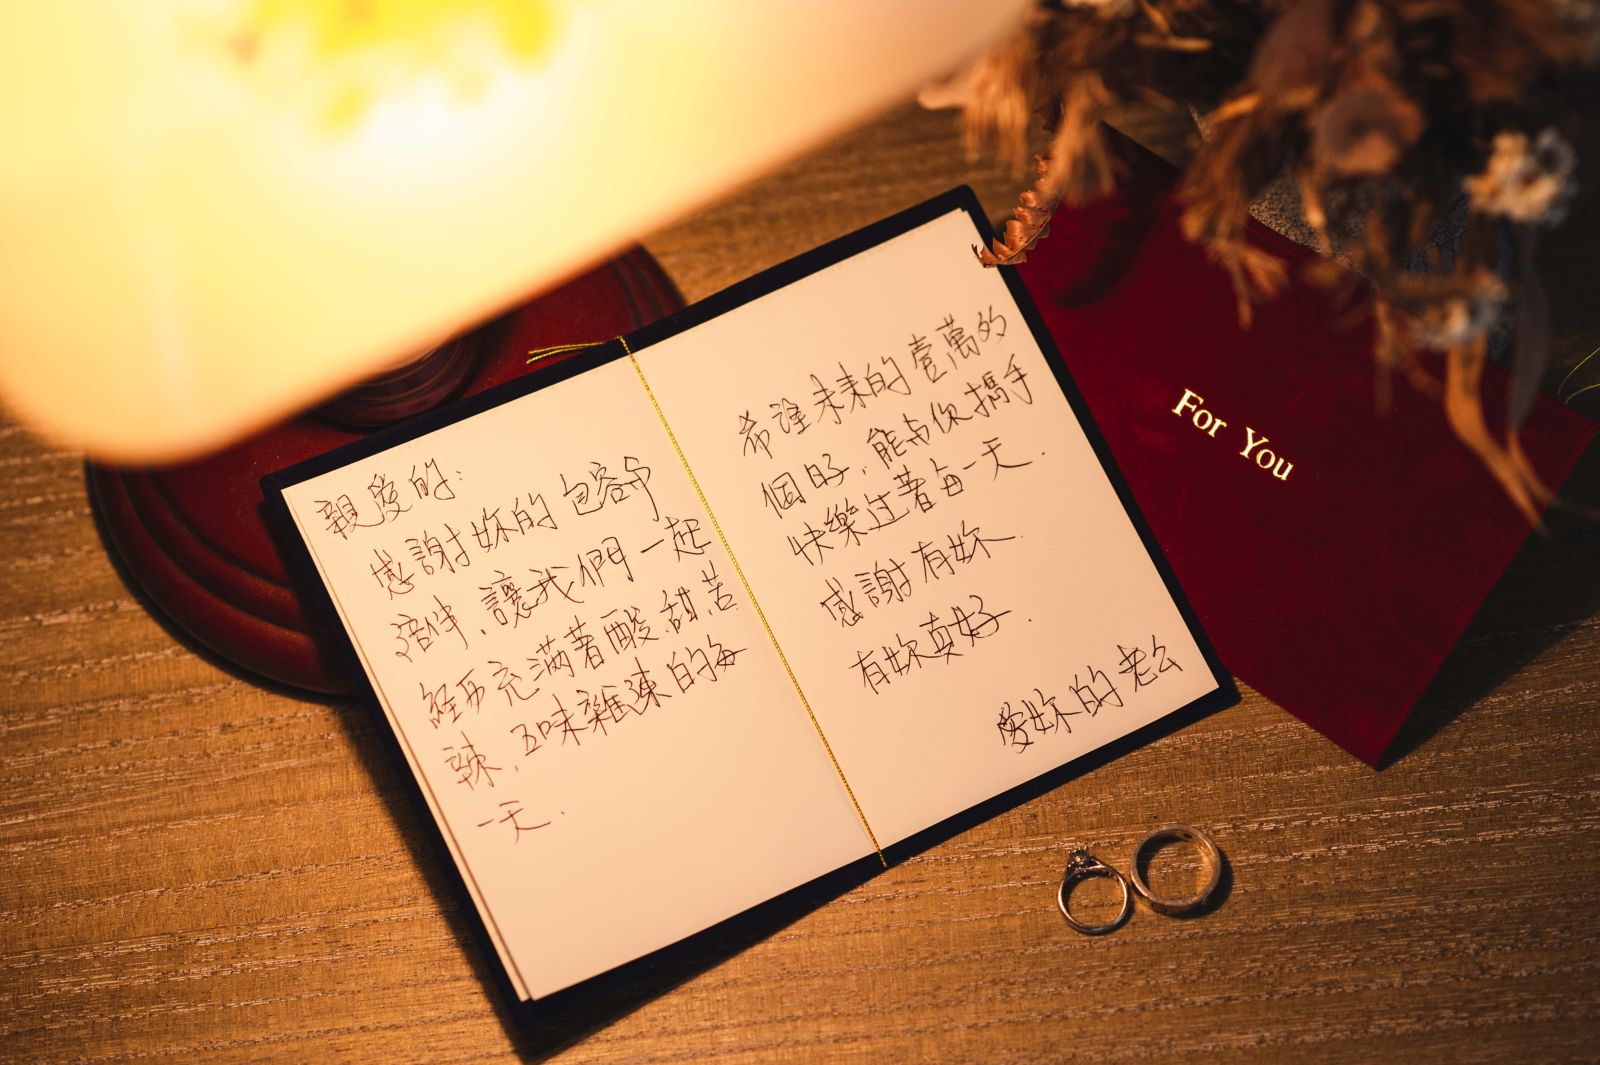 親愛的:
感謝妳的包容与
陪伴、讓我們一起
經历充滿著酸.甜.苦
辣、五味雜陳的每
一天.
希望未來的壹萬多
個日子,能与你攜手
快樂过著每一天.
感謝有妳
有妳真好.
愛妳的老公
For You